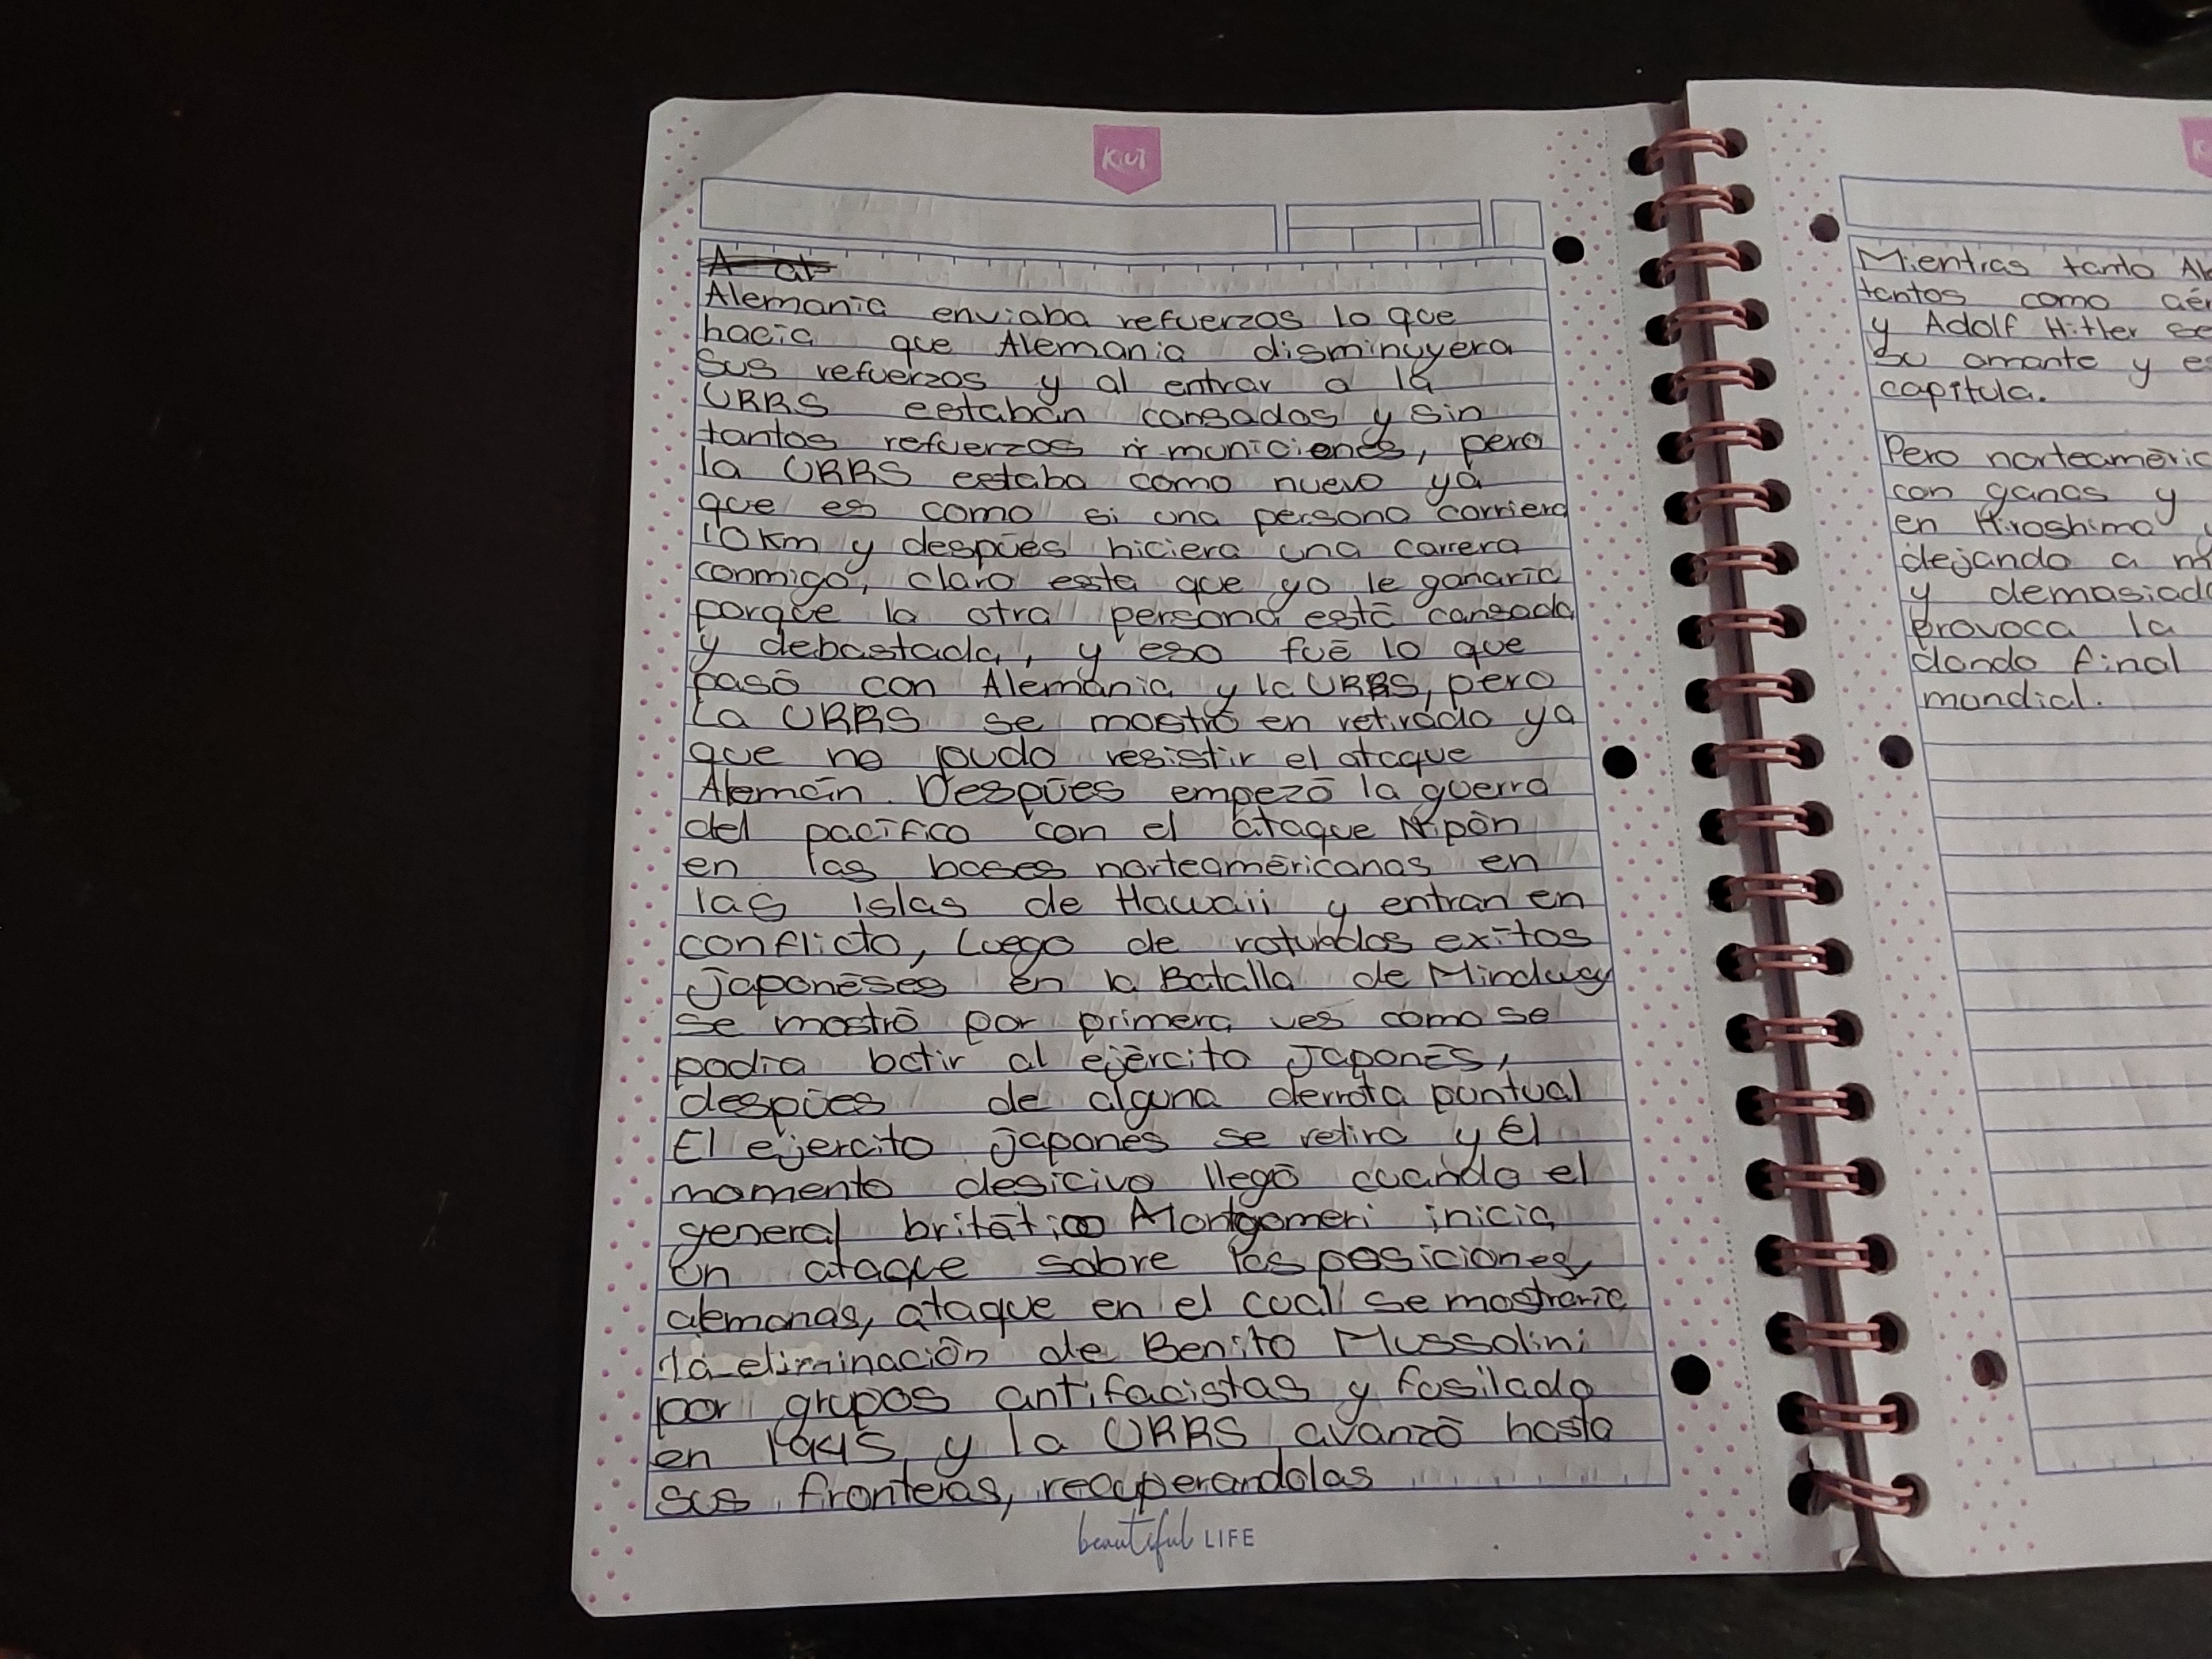 KiUT
A at
Alemania enviaba refuerzos lo que
hacia que Alemania disminuyera
sus refuerzos y al entrar a la
URRS estabán cansados y sin
tantos refuerzos ñ municiones, pero
la URRS estaba como nuevo ya
que es como si una persona corriera
10Km y despúes hiciera una carrera
conmigo, claro esta que yo le ganaria
porque la otra persona está cansada
y debastada, y eso fué lo que
pasó con Alemania y la URRS, pero
La URRS se mostró en retirada ya
que no pudo resistir el ataque
Alemán. Despúes empezó la guerra
del pacífico con el ataque Nipón
en las bases norteaméricanas en
las islas de Hawaii y entran en
conflicto, Luego de rotundos exítos
Japonéses en la Batalla de Mindway
se mostró por primera ves como se
podia batir al ejército Japonés,
despúes de alguna derrota puntual
El ejercito japonés se retira y él
momento desicivo llegó cuando el
general britático Montgomeri inicia
un ataque sobre las posiciones
alemanas, ataque en el cual se mostraria
la eliminación de Benito Mussolini
por grupos antifacistas y fusilado
en 1945, y la URRS avanzó hasta
sus fronteras, recuperandolas
beautiful LIFE
Mientras tanto
tantos como
y Adolf Hitler
su amante y
capítula.
Pero
con ganas y
en Hiroshima
dejando a
y
provoca la
dando final
mundial.